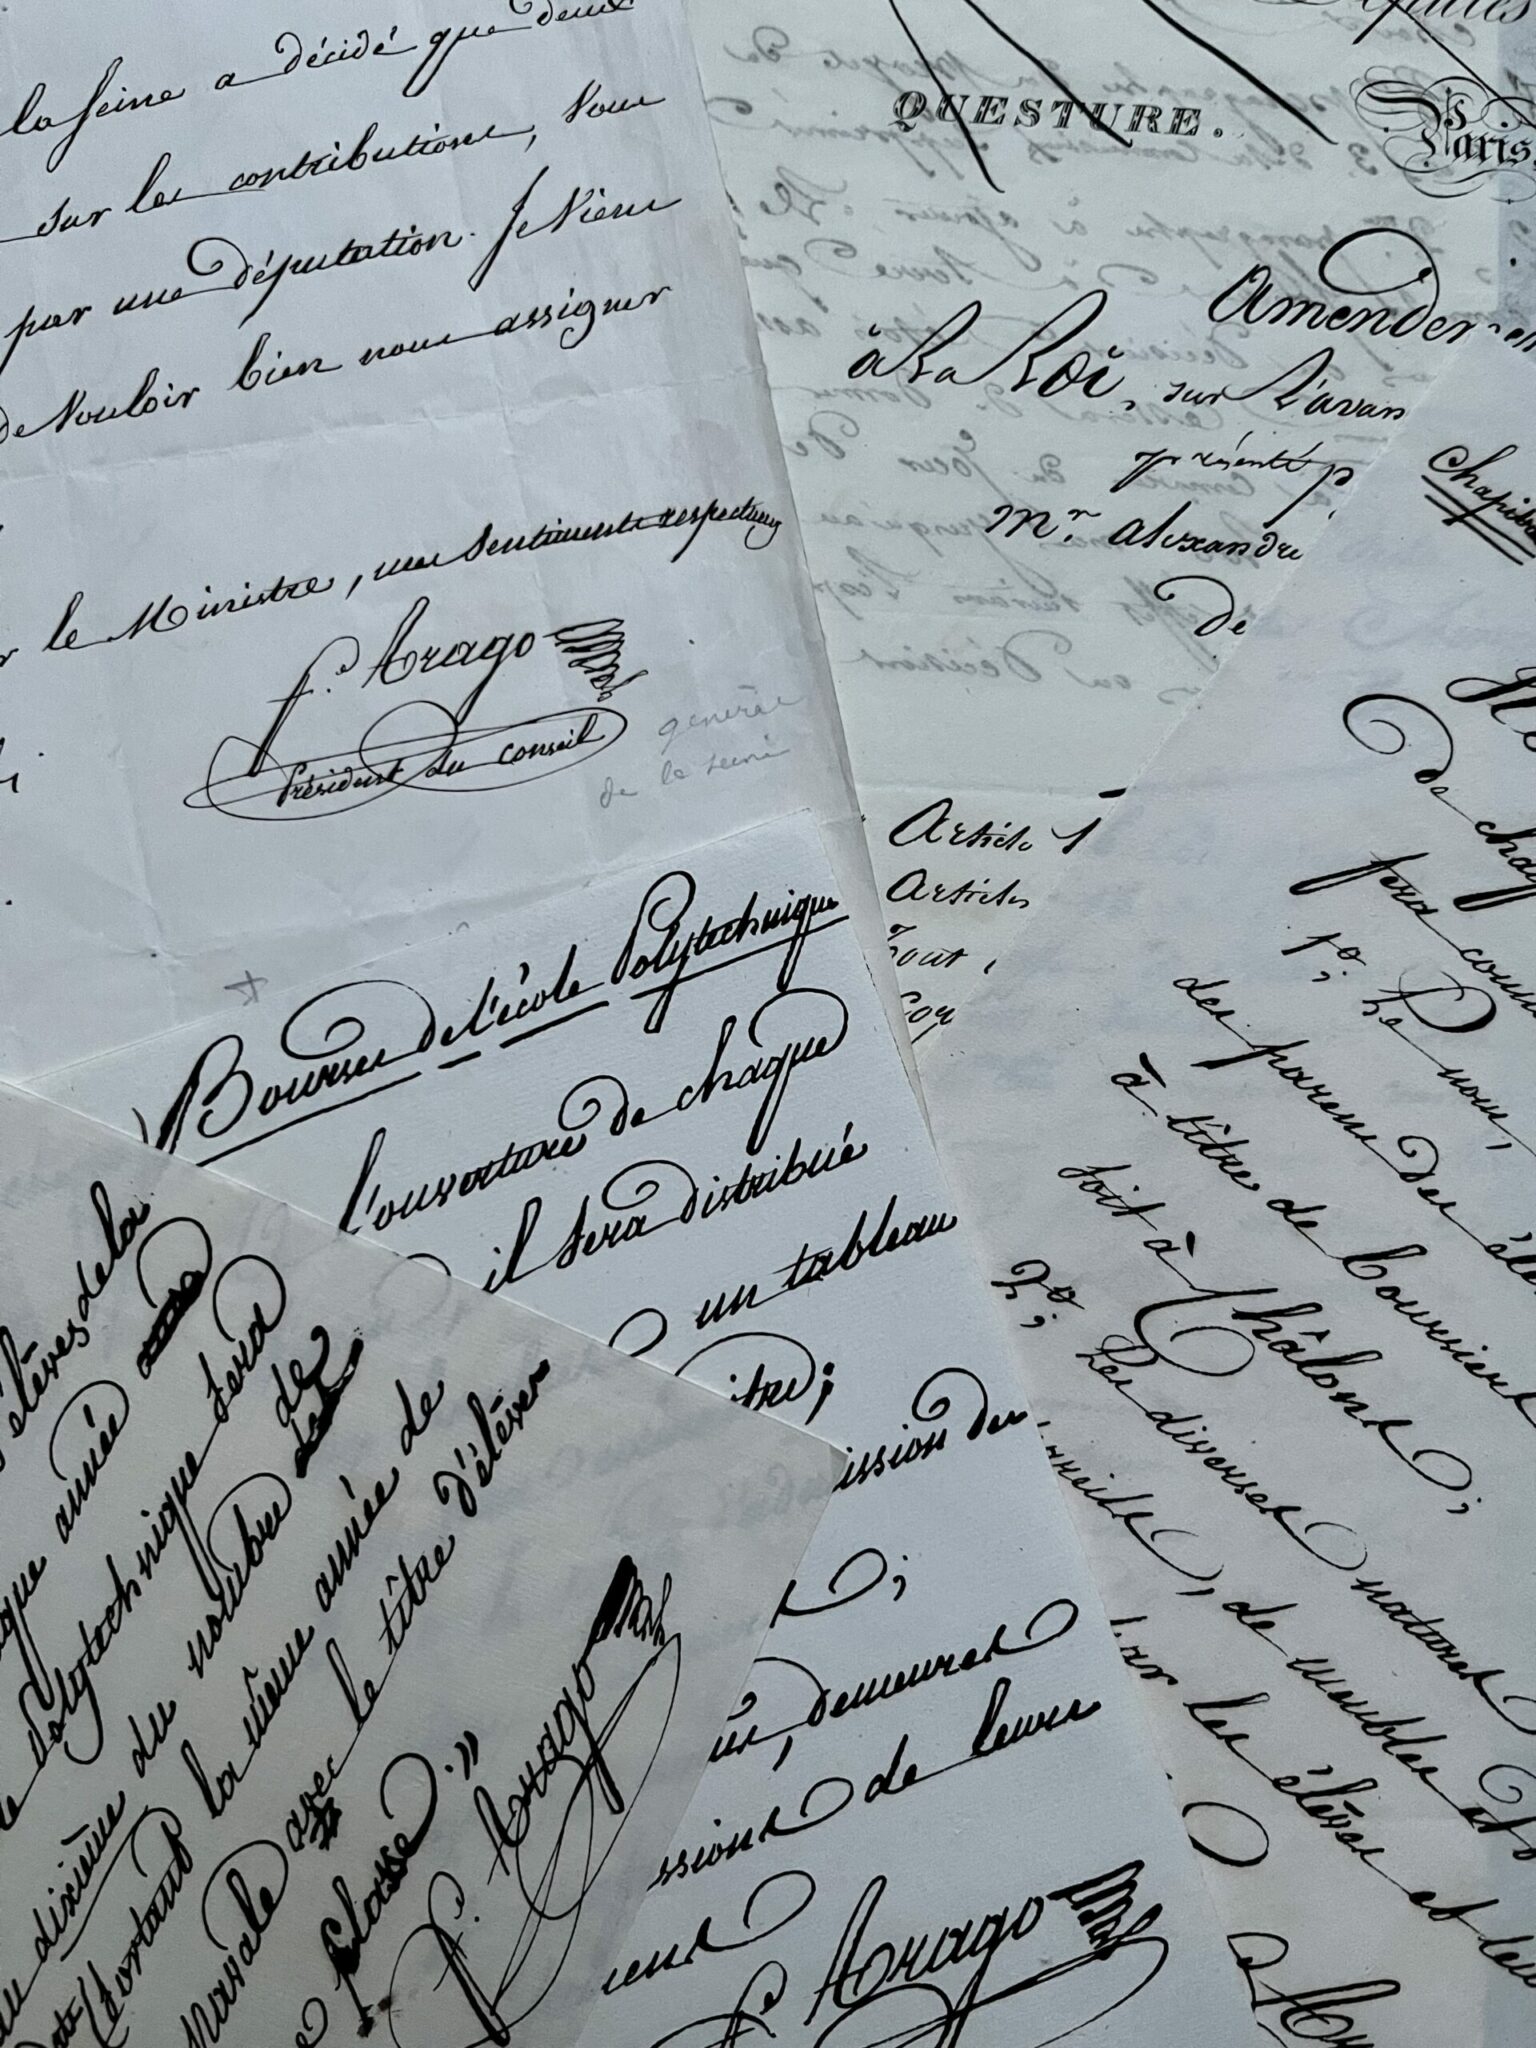 la Seine a décidé que deux
sur les contributions, vous
par une députation. Je viens
de vouloir bien nous assigner
le Ministre, mes sentiments respectueux
f.s Arago
Président du Conseil
général
de la seine
QUESTURE.
Paris,
Amendem
à La Loi, sur L'avan
présenté p
Mr. Alexandre
de
Article 1
Articles
Tout
Chapitre
Bourses de l'école Polytechnique
l'ouverture de chaque
il sera distribué
un tableau
itre;
ission des
;
demeures
ssions de leurs
f.s Arago
élèves de la
que année
Polytechnique sera
dixième du nombre de
sortant la même année de
Navale avec le titre d'élèves
classe."
f.s Arago
de chaq
sera
1o; Le nom,
des parens des élè
à titre de boursiers
soit à Châlons;
2o; Les diverses natures
de meubles et
par les élèves et leu